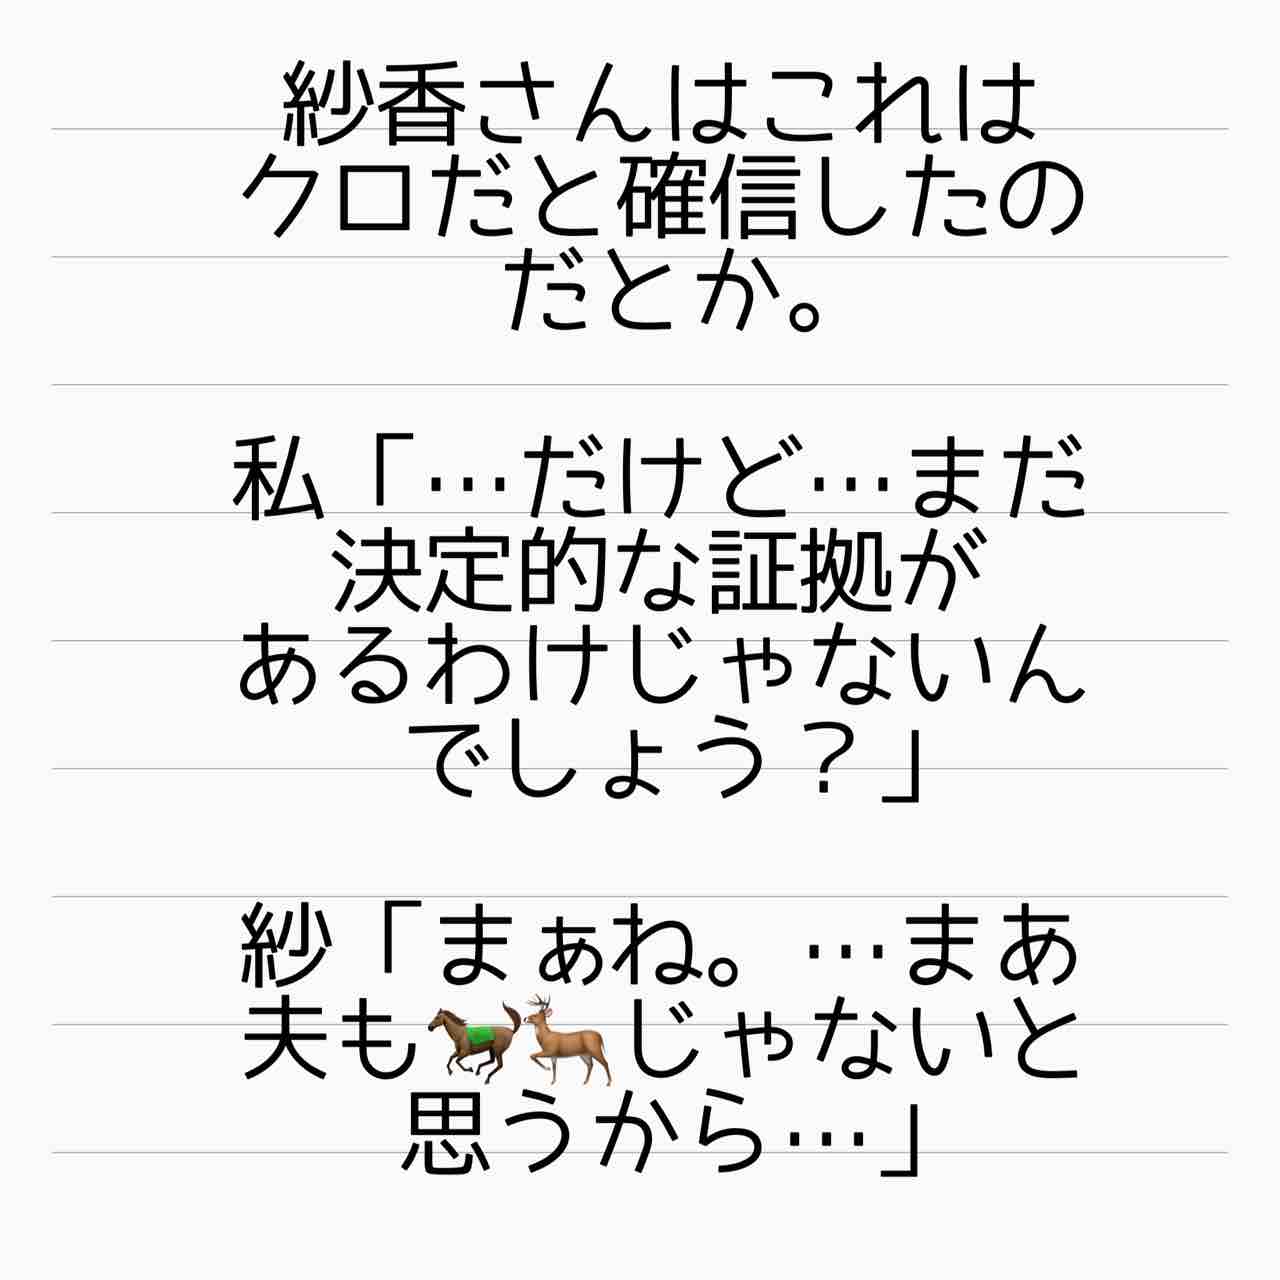 紗香さんはこれは
クロだと確信したの
だとか。
私「…だけど…まだ
決定的な証拠が
あるわけじゃないん
でしょう？」
紗「まぁね。…まあ
夫も🐎🦌じゃないと
思うから…」